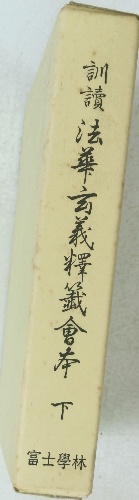 訓讀
法華玄義釋籤會本 下
富士學林